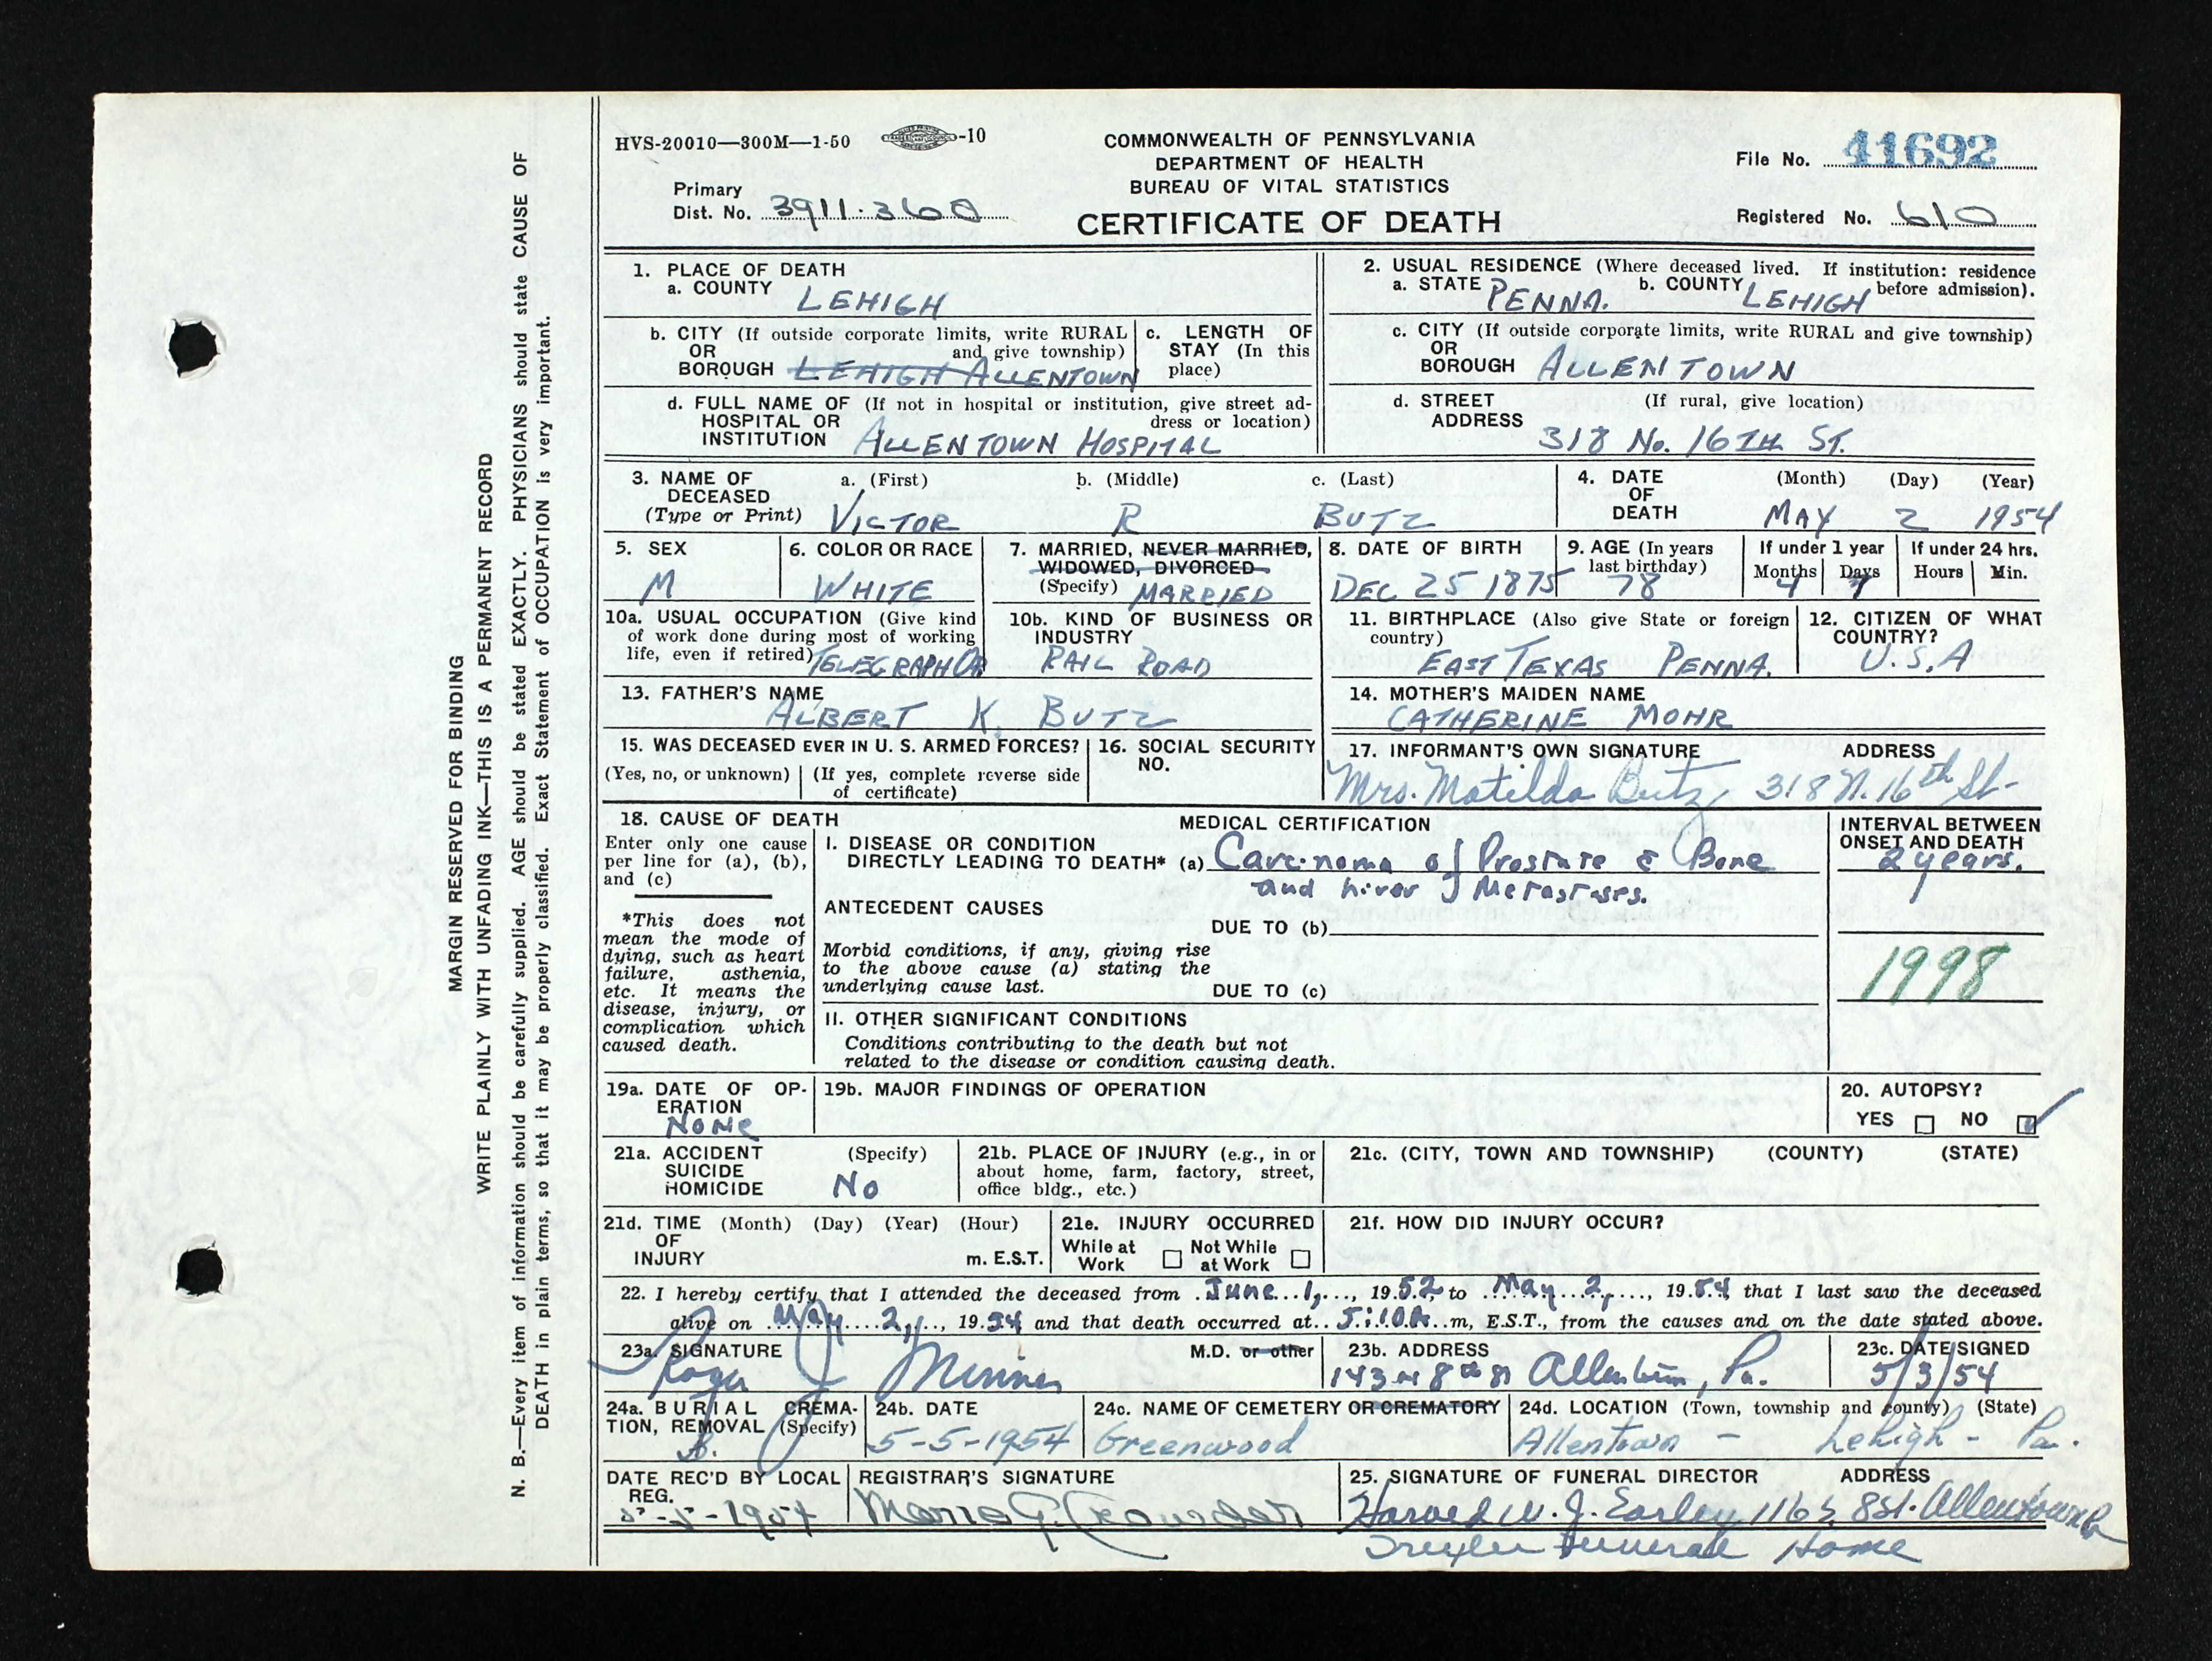 HVS-20010—300M—1-50 -10
COMMONWEALTH OF PENNSYLVANIA
DEPARTMENT OF HEALTH
BUREAU OF VITAL STATISTICS
CERTIFICATE OF DEATH
File No. 41692
Primary
Dist. No. 3911-360
Registered No. 610
1. PLACE OF DEATH
a. COUNTY LEHIGH
2. USUAL RESIDENCE (Where deceased lived. If institution: residence
a. STATE PENNA. b. COUNTY LEHIGH before admission).
b. CITY (If outside corporate limits, write RURAL
OR and give township)
BOROUGH LEHIGH ALLENTOWN
c. LENGTH OF
STAY (In this
place)
c. CITY (If outside corporate limits, write RURAL and give township)
OR
BOROUGH ALLENTOWN
d. FULL NAME OF (If not in hospital or institution, give street ad-
HOSPITAL OR dress or location)
INSTITUTION ALLENTOWN HOSPITAL
d. STREET (If rural, give location)
ADDRESS
318 No. 16TH ST.
3. NAME OF a. (First) b. (Middle) c. (Last)
DECEASED
(Type or Print) VICTOR R BUTZ
4. DATE (Month) (Day) (Year)
OF
DEATH MAY 2 1954
5. SEX
M
6. COLOR OR RACE
WHITE
7. MARRIED, NEVER MARRIED,
WIDOWED, DIVORCED
(Specify) MARRIED
8. DATE OF BIRTH
DEC 25 1875
9. AGE (In years
last birthday)
78
If under 1 year
Months Days
4 7
If under 24 hrs.
Hours Min.
10a. USUAL OCCUPATION (Give kind
of work done during most of working
life, even if retired) TELEGRAPH OP
10b. KIND OF BUSINESS OR
INDUSTRY
RAIL ROAD
11. BIRTHPLACE (Also give State or foreign
country)
EAST TEXAS PENNA.
12. CITIZEN OF WHAT
COUNTRY?
U.S.A
13. FATHER'S NAME
ALBERT K. BUTZ
14. MOTHER'S MAIDEN NAME
CATHERINE MOHR
15. WAS DECEASED EVER IN U. S. ARMED FORCES?
(Yes, no, or unknown) (If yes, complete reverse side
of certificate)
16. SOCIAL SECURITY
NO.
17. INFORMANT'S OWN SIGNATURE ADDRESS
Mrs. Matilda Butz, 318 N. 16th St-
18. CAUSE OF DEATH
Enter only one cause
per line for (a), (b),
and (c)
*This does not
mean the mode of
dying, such as heart
failure, asthenia,
etc. It means the
disease, injury, or
complication which
caused death.
MEDICAL CERTIFICATION
I. DISEASE OR CONDITION
DIRECTLY LEADING TO DEATH* (a) Carcinoma of Prostate c Bone
and Liver Metastases.
ANTECEDENT CAUSES
DUE TO (b)
Morbid conditions, if any, giving rise
to the above cause (a) stating the
underlying cause last.
DUE TO (c)
II. OTHER SIGNIFICANT CONDITIONS
Conditions contributing to the death but not
related to the disease or condition causing death.
INTERVAL BETWEEN
ONSET AND DEATH
2 years.
1998
19a. DATE OF OP-
ERATION
NONE
19b. MAJOR FINDINGS OF OPERATION
20. AUTOPSY?
YES NO
21a. ACCIDENT (Specify)
SUICIDE
HOMICIDE No
21b. PLACE OF INJURY (e.g., in or
about home, farm, factory, street,
office bldg., etc.)
21c. (CITY, TOWN AND TOWNSHIP) (COUNTY) (STATE)
21d. TIME (Month) (Day) (Year) (Hour)
OF
INJURY m. E.S.T.
21e. INJURY OCCURRED
While at Not While
Work at Work
21f. HOW DID INJURY OCCUR?
22. I hereby certify that I attended the deceased from June 1, 1952 to May 2, 1954, that I last saw the deceased
alive on May 2, 1954 and that death occurred at 5:10A m, E.S.T., from the causes and on the date stated above.
23a. SIGNATURE M.D. or other
Roger J
23b. ADDRESS
143 N 8th St Allentown, Pa.
23c. DATE SIGNED
5/3/54
24a. BURIAL CREMA-
TION, REMOVAL (Specify)
B.
24b. DATE
5-5-1954
24c. NAME OF CEMETERY OR CREMATORY
Greenwood
24d. LOCATION (Town, township and county) (State)
Allentown - Lehigh - Pa.
DATE REC'D BY LOCAL
REG.
5-5-1954
REGISTRAR'S SIGNATURE
25. SIGNATURE OF FUNERAL DIRECTOR ADDRESS
Harold W. J. Earley 116 S 8 St. Allentown Pa
Trexler Funeral Home
MARGIN RESERVED FOR BINDING
WRITE PLAINLY WITH UNFADING INK—THIS IS A PERMANENT RECORD
N. B.—Every item of information should be carefully supplied. AGE should be stated EXACTLY. PHYSICIANS should state CAUSE OF
DEATH in plain terms, so that it may be properly classified. Exact Statement of OCCUPATION is very important.